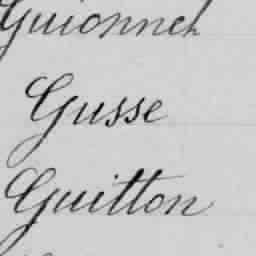 Guionnet
Gusse
Guitton